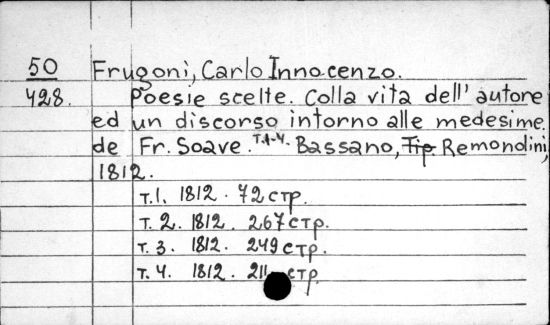 50 Frugoni, Carlo Innocenzo.
428. Poesie scelte. Colla vita dell' autore
ed un discorso intorno alle medesime.
de Fr. Soave. т.1-4. Bassano, Tip. Remondini,
1812.
т.1. 1812. 72 стр.
т. 2. 1812. 267 стр.
т. 3. 1812. 249 стр.
т. 4. 1812. 211 стр.